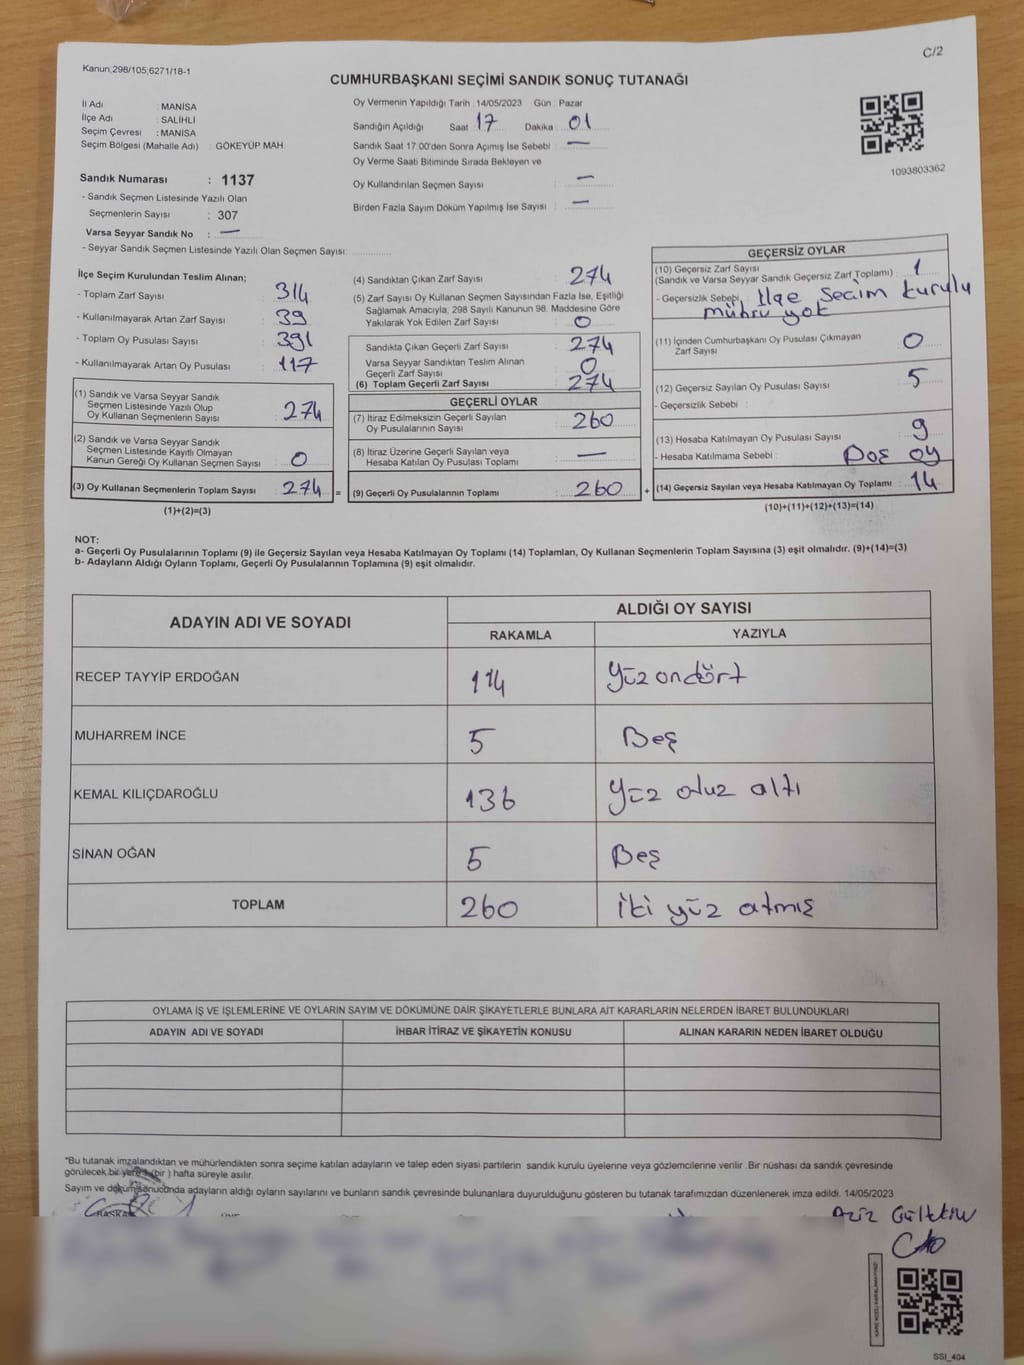 C/2
Kanun;298/105;6271/18-1
CUMHURBAŞKANI SEÇİMİ SANDIK SONUÇ TUTANAĞI
İl Adı : MANİSA
İlçe Adı : SALİHLİ
Seçim Çevresi : MANİSA
Seçim Bölgesi (Mahalle Adı) : GÖKEYÜP MAH
Sandık Numarası : 1137
- Sandık Seçmen Listesinde Yazılı Olan
Seçmenlerin Sayısı : 307
Varsa Seyyar Sandık No : —
- Seyyar Sandık Seçmen Listesinde Yazılı Olan Seçmen Sayısı:
Oy Vermenin Yapıldığı Tarih : 14/05/2023 Gün : Pazar
Sandığın Açıldığı Saat : 17 Dakika : 01
Sandık Saat 17:00'den Sonra Açımış İse Sebebi : —
Oy Verme Saati Bitiminde Sırada Bekleyen ve
Oy Kullandırılan Seçmen Sayısı : —
Birden Fazla Sayım Döküm Yapılmış İse Sayısı : —
1093803362
İlçe Seçim Kurulundan Teslim Alınan;
- Toplam Zarf Sayısı : 314
- Kullanılmayarak Artan Zarf Sayısı : 39
- Toplam Oy Pusulası Sayısı : 391
- Kullanılmayarak Artan Oy Pusulası : 117
(1) Sandık ve Varsa Seyyar Sandık
Seçmen Listesinde Yazılı Olup
Oy Kullanan Seçmenlerin Sayısı : 274
(2) Sandık ve Varsa Seyyar Sandık
Seçmen Listesinde Kayıtlı Olmayan
Kanun Gereği Oy Kullanan Seçmen Sayısı : 0
(3) Oy Kullanan Seçmenlerin Toplam Sayısı : 274 =
(1)+(2)=(3)
(4) Sandıktan Çıkan Zarf Sayısı : 274
(5) Zarf Sayısı Oy Kullanan Seçmen Sayısından Fazla İse, Eşitliği
Sağlamak Amacıyla, 298 Sayılı Kanunun 98. Maddesine Göre
Yakılarak Yok Edilen Zarf Sayısı : 0
Sandıkta Çıkan Geçerli Zarf Sayısı : 274
Varsa Seyyar Sandıktan Teslim Alınan
Geçerli Zarf Sayısı : 0
(6) Toplam Geçerli Zarf Sayısı : 274
GEÇERLİ OYLAR
(7) İtiraz Edilmeksizin Geçerli Sayılan
Oy Pusulalarının Sayısı : 260
(8) İtiraz Üzerine Geçerli Sayılan veya
Hesaba Katılan Oy Pusulası Toplamı : —
(9) Geçerli Oy Pusulalarının Toplamı : 260 +
GEÇERSİZ OYLAR
(10) Geçersiz Zarf Sayısı
(Sandık ve Varsa Seyyar Sandık Geçersiz Zarf Toplamı) : 1
- Geçersizlik Sebebi : İlçe Seçim kurulu
mührü yok
(11) İçinden Cumhurbaşkanı Oy Pusulası Çıkmayan
Zarf Sayısı : 0
(12) Geçersiz Sayılan Oy Pusulası Sayısı : 5
- Geçersizlik Sebebi :
(13) Hesaba Katılmayan Oy Pusulası Sayısı : 9
- Hesaba Katılmama Sebebi : Boş oy
(14) Geçersiz Sayılan veya Hesaba Katılmayan Oy Toplamı : 14
(10)+(11)+(12)+(13)=(14)
NOT:
a- Geçerli Oy Pusulalarının Toplamı (9) ile Geçersiz Sayılan veya Hesaba Katılmayan Oy Toplamı (14) Toplamları, Oy Kullanan Seçmenlerin Toplam Sayısına (3) eşit olmalıdır. (9)+(14)=(3)
b- Adayların Aldığı Oyların Toplamı, Geçerli Oy Pusulalarının Toplamına (9) eşit olmalıdır.
ADAYIN ADI VE SOYADI ALDIĞI OY SAYISI
RAKAMLA YAZIYLA
RECEP TAYYİP ERDOĞAN 114 Yüz ondört
MUHARREM İNCE 5 Beş
KEMAL KILIÇDAROĞLU 136 Yüz otuz altı
SİNAN OĞAN 5 Beş
TOPLAM 260 iki yüz atmış
OYLAMA İŞ VE İŞLEMLERİNE VE OYLARIN SAYIM VE DÖKÜMÜNE DAİR ŞİKAYETLERLE BUNLARA AİT KARARLARIN NELERDEN İBARET BULUNDUKLARI
ADAYIN ADI VE SOYADI İHBAR İTİRAZ VE ŞİKAYETİN KONUSU ALINAN KARARIN NEDEN İBARET OLDUĞU
*Bu tutanak imzalandıktan ve mühürlendikten sonra seçime katılan adayların ve talep eden siyasi partilerin sandık kurulu üyelerine veya gözlemcilerine verilir. Bir nüshası da sandık çevresinde
görülecek bir yere 1 (bir) hafta süreyle asılır.
Sayım ve döküm sonucunda adayların aldığı oyların sayılarını ve bunların sandık çevresinde bulunanlara duyurulduğunu gösteren bu tutanak tarafımızdan düzenlenerek imza edildi. 14/05/2023
BAŞKAN
Aziz Gültekin
SSI_404